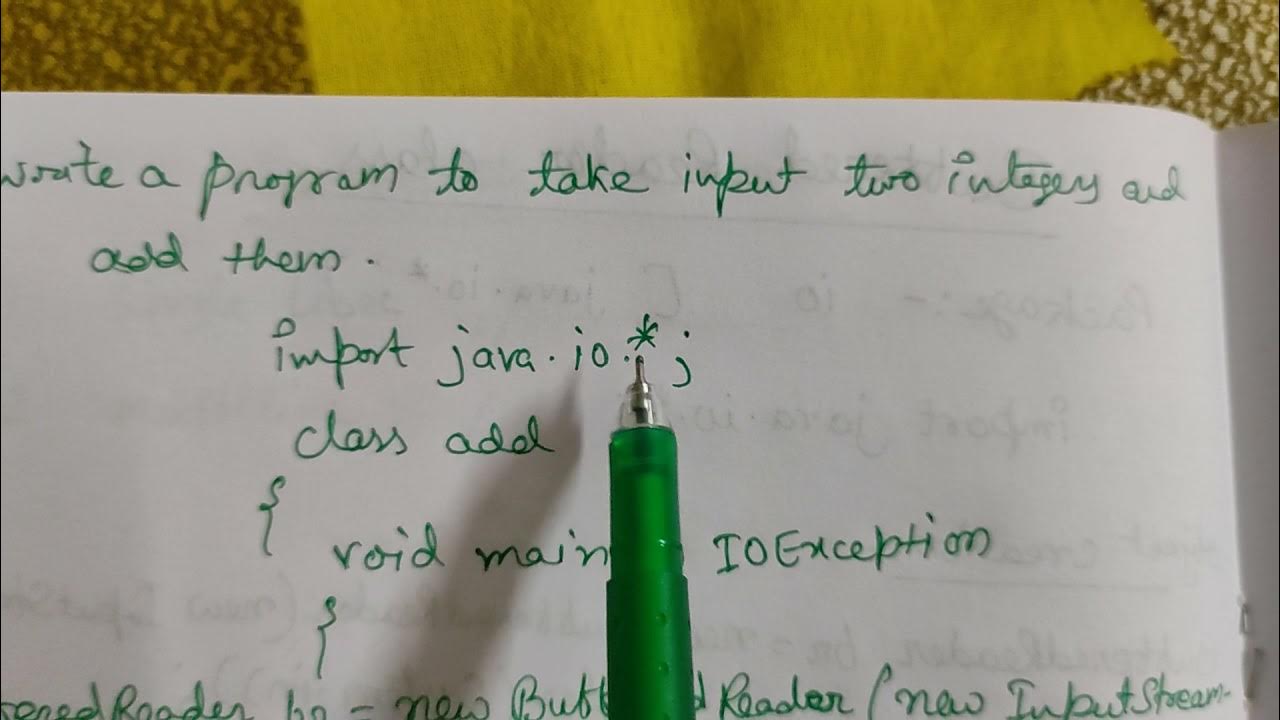 write a program to take input two integers and
add them.
import java.io.*;
class add
{
void main IOException
{
BufferedReader br = new Buff dReader (new InputStream-